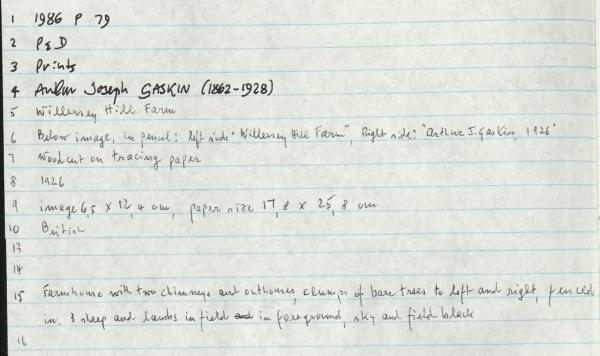 1 1986 P 79
2 P&D
3 Prints
4 Arthur Joseph GASKIN (1862-1928)
5 Willersey Hill Farm
6 Below image, in pencil: left side "Willersey Hill Farm", Right side: "Arthur J. Gaskin, 1926"
7 Woodcut on tracing paper
8 1926
9 image 6,5 x 12,4 cm, paper size 17,8 x 25,8 cm
10 British
13
14
15 Farmhouse with two chimneys and outhouses, clumps of bare trees to left and right, fenced
in. 3 sheep and lambs in field and in foreground, sky and field black
16